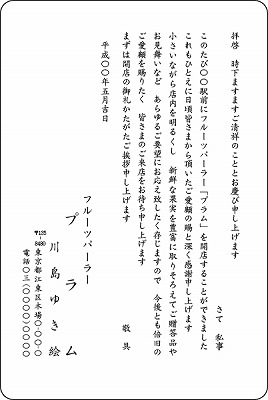 拝啓　時下ますますご清祥のこととお慶び申し上げます
さて　私事
このたび〇〇駅前にフルーツパーラー「プラム」を開店することができました
これもひとえに日頃皆さまから頂いたご愛顧の賜と深く感謝申し上げます
小さいながら店内を明るくし　新鮮な果実を豊富に取りそろえてご贈答品や
お見舞いなど　あらゆるご要望にお応え致したく存じますので　今後とも倍旧の
ご愛顧を賜りたく　皆さまのご来店をお待ち申し上げます
まずは開店の御礼かたがたご挨拶申し上げます
敬具
平成〇〇年五月吉日
フルーツパーラー
プラム
川島ゆき絵
〒135-8480
東京都江東区木場〇-〇-〇
電話〇三(〇〇〇〇)〇〇〇〇